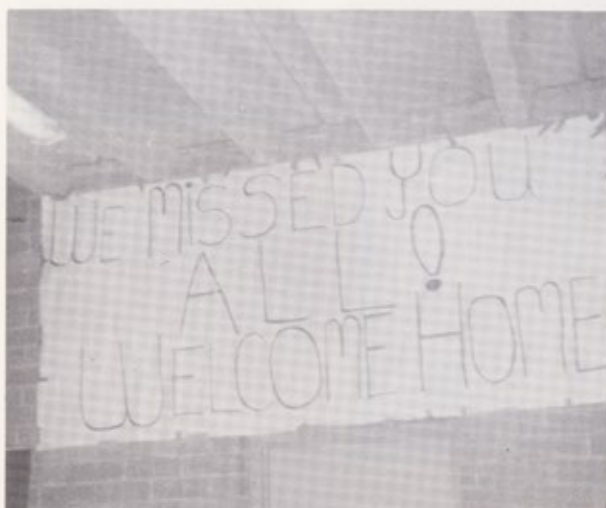 WE MiSSED YOU
ALL!
WELCOME HOME